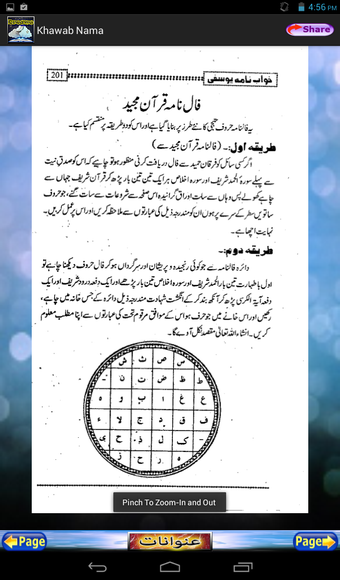 4:56 PM
Khawab Nama
Share
201
خواب نامہ یوسفی
فال نامہ قرآن مجید
یہ فالنامہ حروف تہجی کا نئے طرز پر بنایا گیا ہے اور اس کو دو طریقہ پر منقسم کیا ہے۔
طریقہ اول:۔ (فالنامہ قرآن مجید سے)
اگر کسی سائل کو فرقان حمید سے فال دریافت کرنی منظور ہو تو چاہیے کہ اس کو صدق نیت
سے پہلے سورۃ الحمد شریف اور سورہ اخلاص ہر ایک تین تین بار پڑھ کر قرآن شریف جہاں سے
چاہے کھولے پس وہاں سے سات اوراق گر اینده اس صفحہ سے شروعات سے سات گنے، جو حروف
ساتویں سطر کے سرے پر ہوں ان کو مندرجہ ذیل کی عبارتوں سے ملاحظہ کریں اور اس پر عمل کریں۔
نہایت اچھا ہے۔
طریقہ دوم:۔
دائرہ فالنامہ سے جو کوئی رنجیدہ و پریشان اور سرگرداں ہو کر فال حروف دیکھنا چاہے تو
اول با طہارت تین بار الحمد شریف اور سورہ اخلاص تین بار پڑھے اور ایک دفعہ درود شریف اور ایک
دفعہ آیۃ الکرسی پڑھ کر آنکھ بند کر کے انگشت شہادت مندرجہ ذیل دائرہ کے جس خانہ میں چاہے،
رکھیں اور اس خانے میں جو حرف ہو اس کے موافق مرقوم تحت کی عبارتوں سے اپنا مطلب معلوم
کریں۔ انشاء اللہ تعالیٰ مقصد نکل آوے گا۔
ش ث ص س
ن ت ض ظ ط
ہ و ب ا ع غ
ء لا ج د ق ف
ی ح ذ ل ک
ز خ ر م
Pinch To Zoom-In and Out
Page
عنوانات
Page